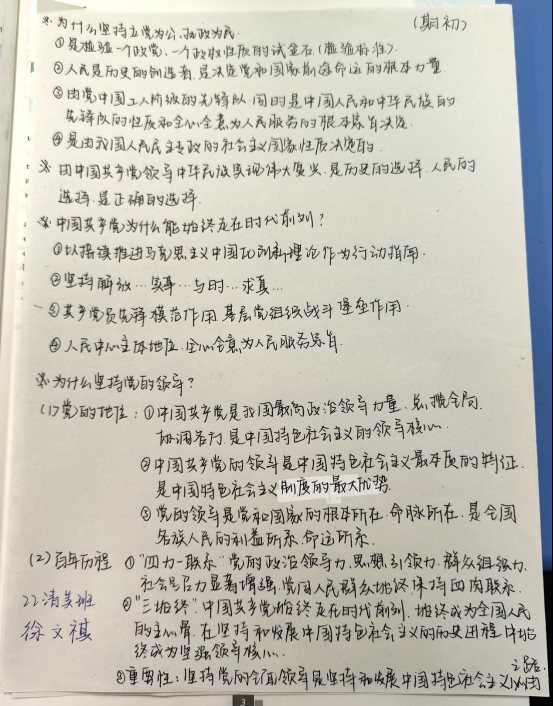 (期初)
※ 为什么坚持立党为公、执政为民.
①是检验一个政党、一个政权性质的试金石(检验标准).
②人民是历史的创造者,是决定党和国家前途命运的根本力量
③由党中国工人阶级的先锋队,同时是中国人民和中华民族的
先锋队的性质和全心全意为人民服务的根本宗旨决定.
④是由我国人民民主专政的社会主义国家性质决定的.
※ 由中国共产党领导中华民族实现伟大复兴,是历史的选择、人民的
选择.是正确的选择.
※ 中国共产党为什么能始终走在时代前列?
①以接续推进马克思主义中国化创新理论作为行动指南.
②坚持解放…实事…与时…求真…
③共产党员先锋模范作用 基层党组织战斗堡垒作用.
④人民中心主体地位.全心全意为人民服务宗旨.
※ 为什么坚持党的领导?
(1)党的地位:①中国共产党是我国最高政治领导力量.总揽全局.
协调各方 是中国特色社会主义的领导核心.
②中国共产党的领导是中国特色社会主义最本质的特征.
是中国特色社会主义制度的最大优势.
③党的领导是党和国家的根本所在、命脉所在.是全国
各族人民的利益所系.命运所系.
(2)百年历程 ①"四力一联系"党的政治领导力.思想引领力.群众组织力.
社会号召力显著增强,党同人民群众始终保持血肉联系.
②"三始终".中国共产党始终走在时代前列.始终成为全国人民
的主心骨.在坚持和发展中国特色社会主义的历史进程中始
终成为坚强领导核心.
③重要性:坚持党的全面领导是坚持和发展中国特色社会主义必由
之路.
22清美班
徐文祺
3